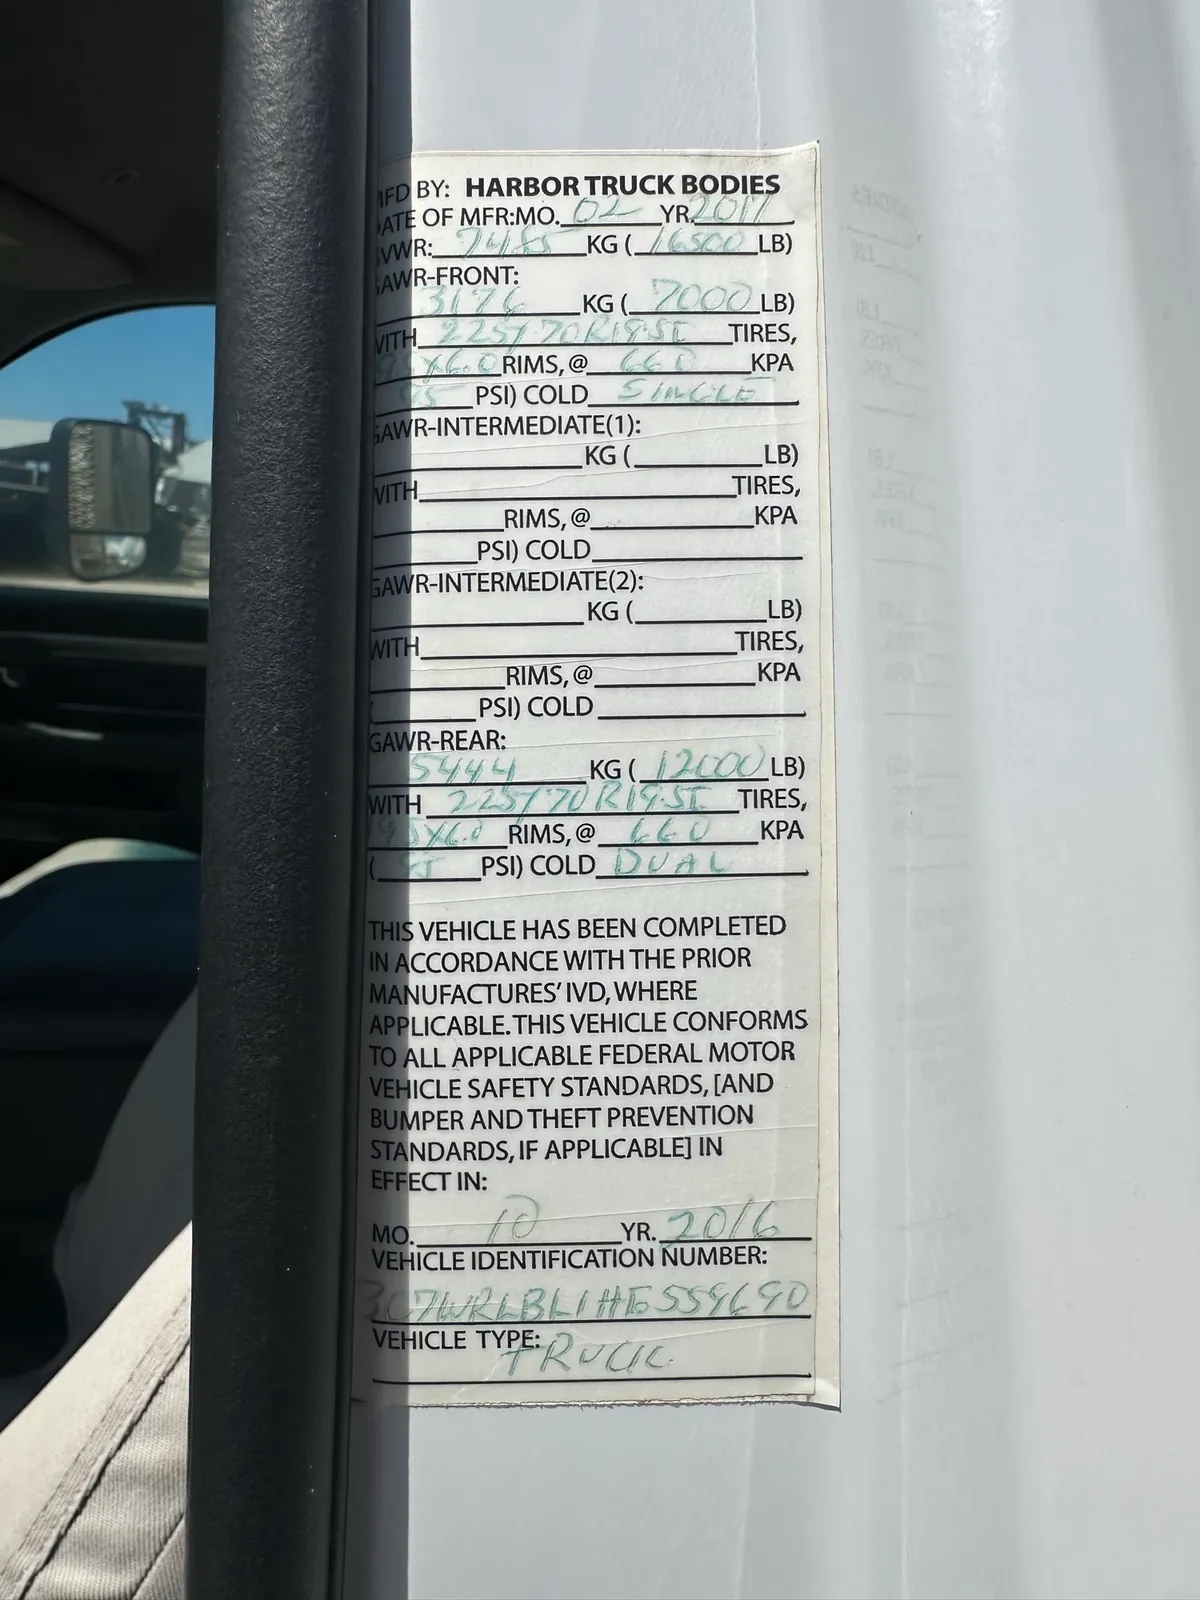 MFD BY: HARBOR TRUCK BODIES
DATE OF MFR:MO. 02 YR. 2017
GVWR: 7485 KG ( 16500 LB)
GAWR-FRONT:
3176 KG ( 7000 LB)
WITH 225/70R19.5 TIRES,
X6.0 RIMS, @ 660 KPA
95 PSI) COLD SINGLE
GAWR-INTERMEDIATE(1):
KG ( LB)
WITH TIRES,
RIMS, @ KPA
PSI) COLD
GAWR-INTERMEDIATE(2):
KG ( LB)
WITH TIRES,
RIMS, @ KPA
( PSI) COLD
GAWR-REAR:
5444 KG ( 12000 LB)
WITH 225/70R19.5 TIRES,
X6.0 RIMS, @ 660 KPA
( PSI) COLD DUAL
THIS VEHICLE HAS BEEN COMPLETED
IN ACCORDANCE WITH THE PRIOR
MANUFACTURES' IVD, WHERE
APPLICABLE. THIS VEHICLE CONFORMS
TO ALL APPLICABLE FEDERAL MOTOR
VEHICLE SAFETY STANDARDS, [AND
BUMPER AND THEFT PREVENTION
STANDARDS, IF APPLICABLE] IN
EFFECT IN:
MO. 10 YR. 2016
VEHICLE IDENTIFICATION NUMBER:
3C7WRLBL1HG559690
VEHICLE TYPE: TRUCK